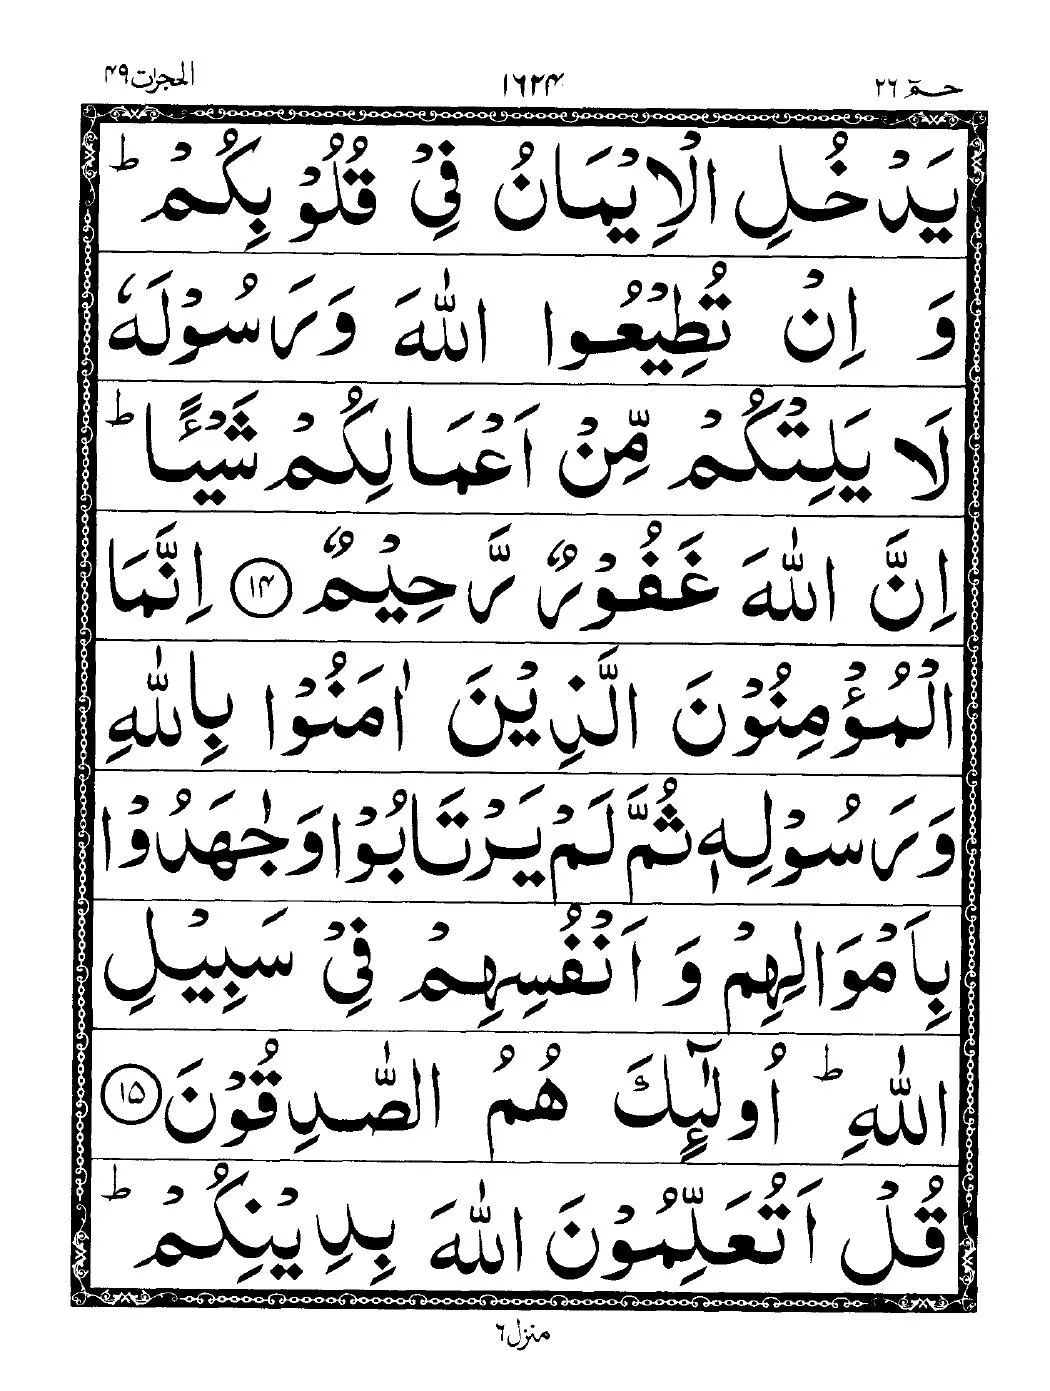 الحجرات ۴۹
۱۶۲۴
حٰمٓ ۲۶
يَدْخُلِ الْاِيْمَانُ فِيْ قُلُوْبِكُمْ ؕ
وَ اِنْ تُطِيْعُوا اللّٰهَ وَ رَسُوْلَهٗ
لَا يَلِتْكُمْ مِّنْ اَعْمَالِكُمْ شَيْـًٔا ؕ
اِنَّ اللّٰهَ غَفُوْرٌ رَّحِيْمٌ ۱۴ اِنَّمَا
الْمُؤْمِنُوْنَ الَّذِيْنَ اٰمَنُوْا بِاللّٰهِ
وَ رَسُوْلِهٖ ثُمَّ لَمْ يَرْتَابُوْا وَ جٰهَدُوْا
بِاَمْوَالِهِمْ وَ اَنْفُسِهِمْ فِيْ سَبِيْلِ
اللّٰهِ ؕ اُولٰٓئِكَ هُمُ الصّٰدِقُوْنَ ۱۵
قُلْ اَتُعَلِّمُوْنَ اللّٰهَ بِدِيْنِكُمْ ؕ
منزل ۶